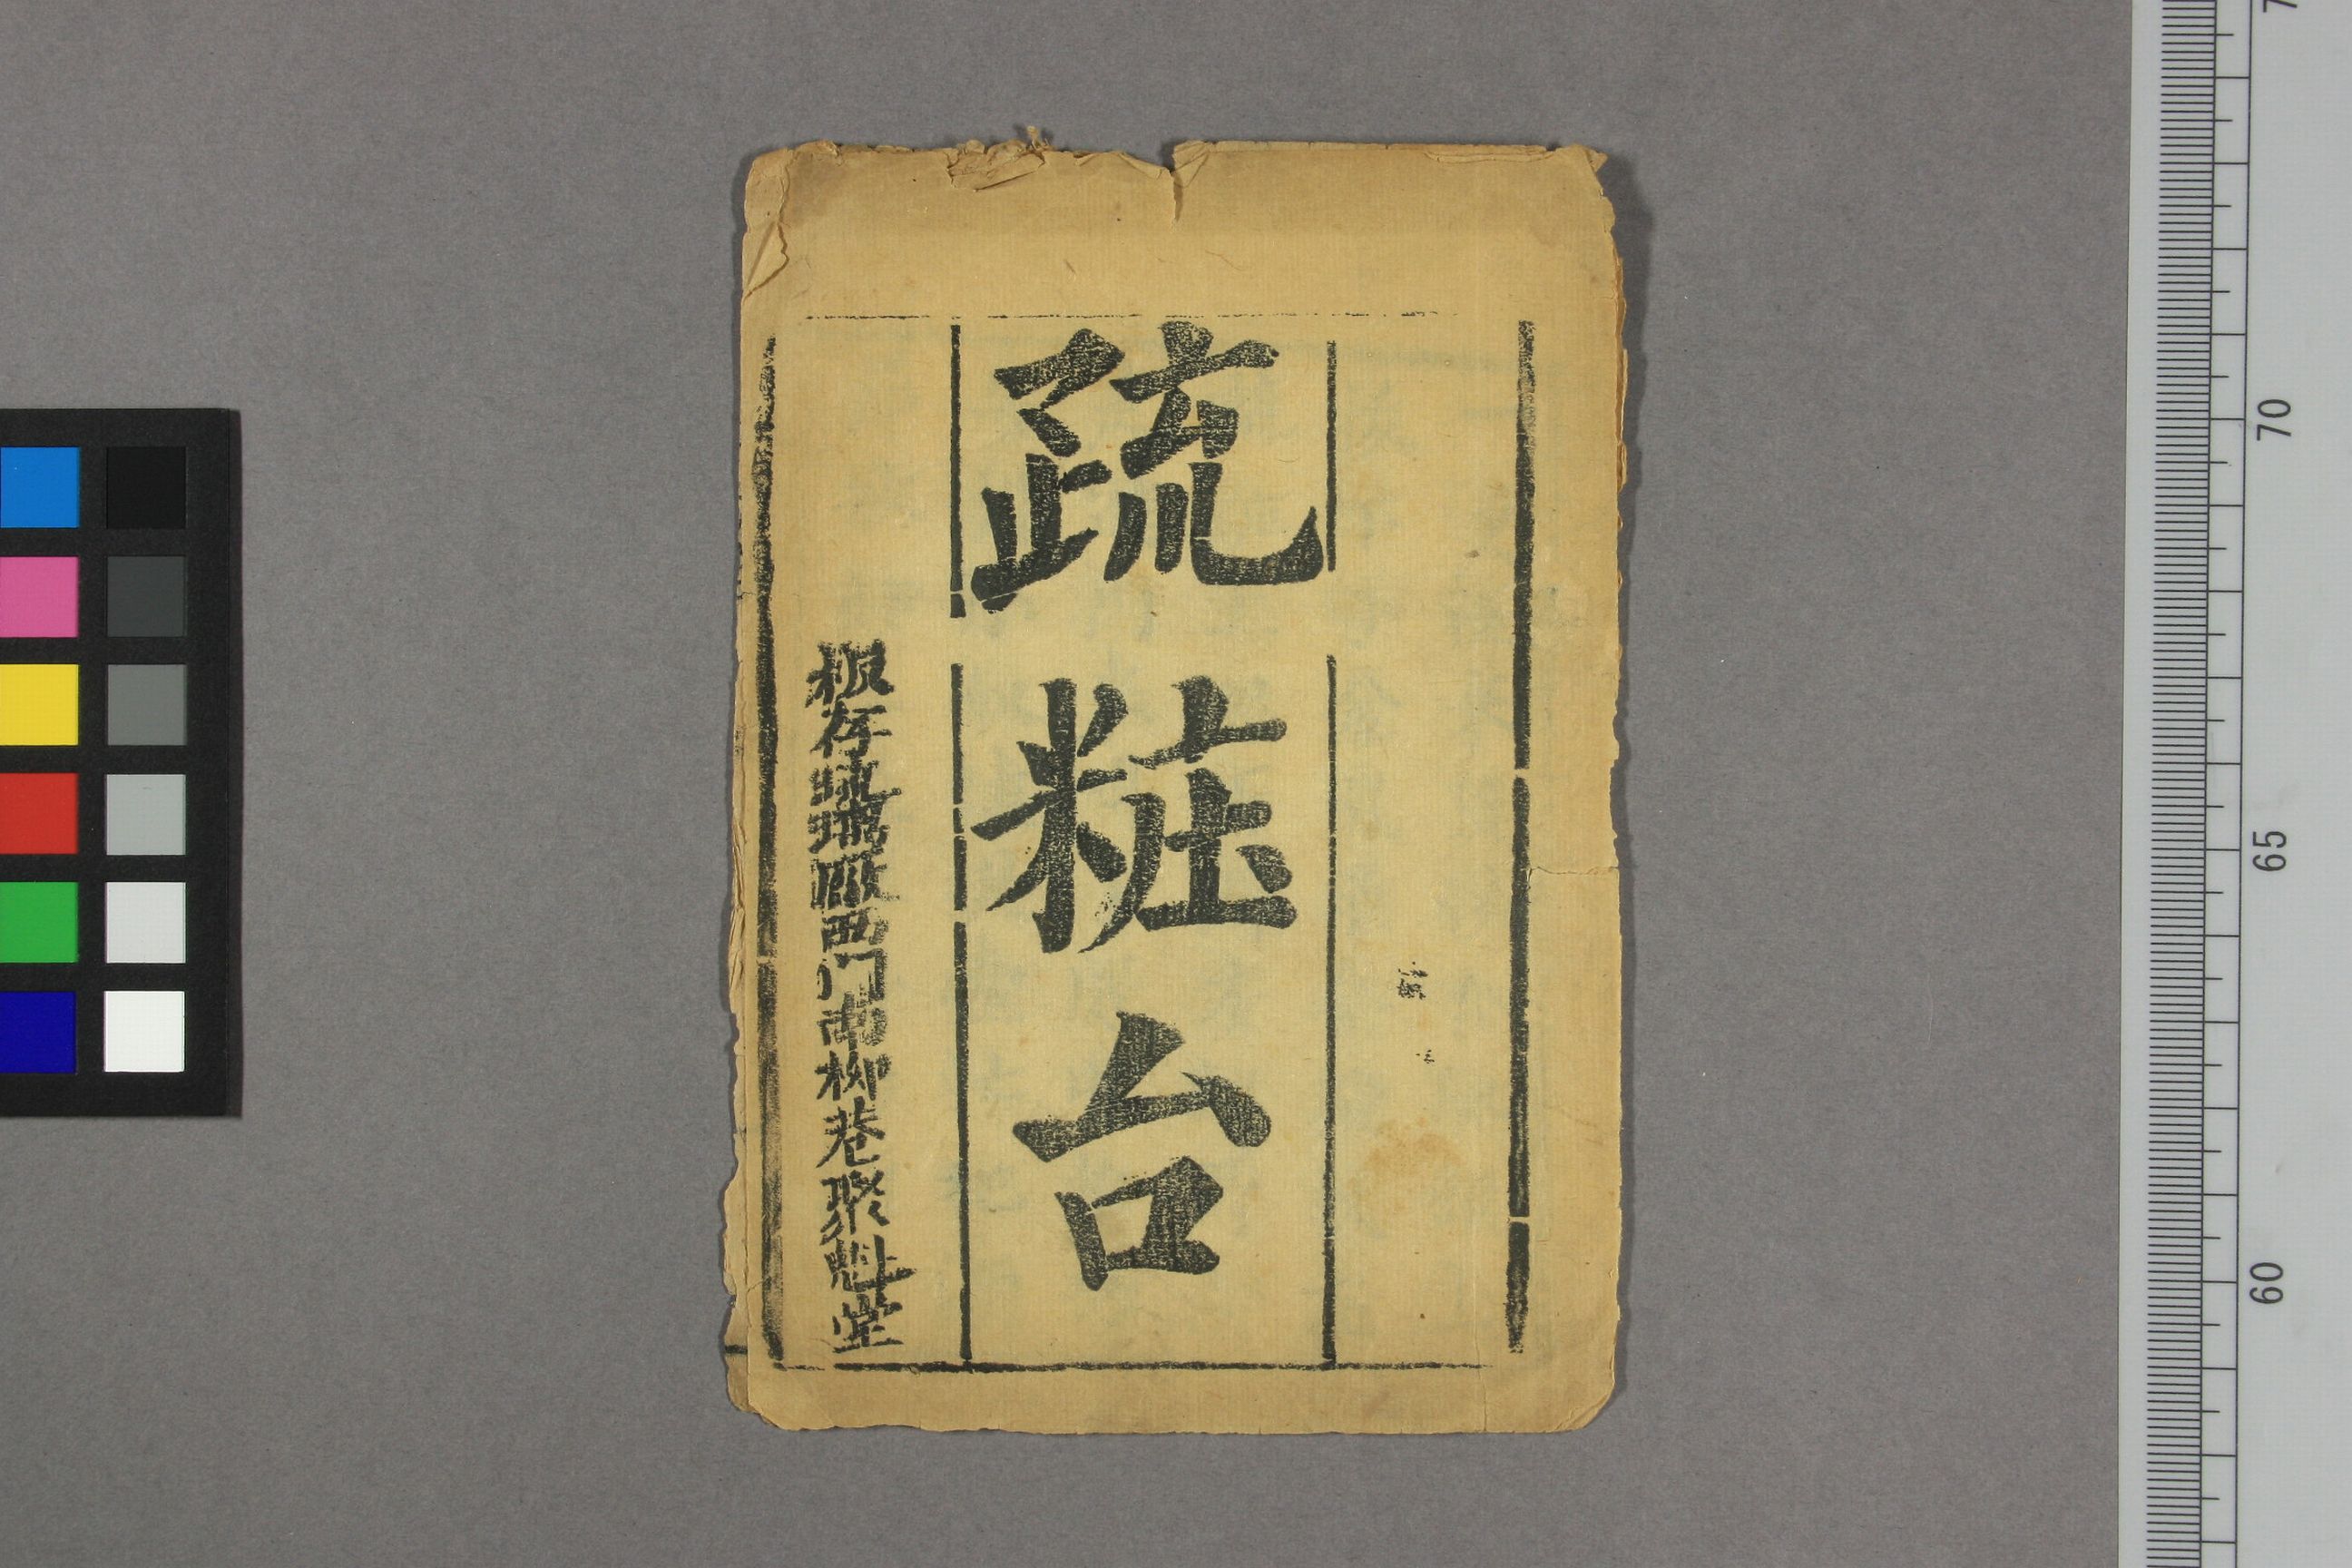 疏粧台
板存琉璃厰西門南柳巷聚魁堂
70
65
60